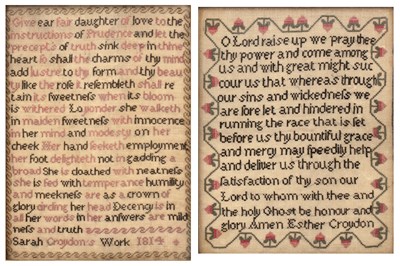 Give ear fair daughter of love to the
instructions of Prudence and let the
precepts of truth sink deep in thine
heart so shall the charms of thy mind
add lustre to thy form and thy beau
ty like the rose it resembleth shall re
tain its sweetness when its bloom
is withered Lo yonder she walketh
in maiden sweetness with innocence
in her mind and modesty on her
cheek Her hand seeketh employment
her foot delighteth not in gadding a
broad She is cloathed with neatness
she is fed with temperance humility
and meekness are as a crown of
glory circling her head Decency is in
all her words in her answers are mild
ness and truth
Sarah Croydon's Work 1814
O Lord raise up we pray thee
thy power and come among
us and with great might suc
cour us that whereas through
our sins and wickedness we
are sore let and hindered in
running the race that is set
before us thy bountiful grace
and mercy may speedily help
and deliver us through the
satisfaction of thy son our
Lord to whom with thee and
the holy Ghost be honour and
glory Amen Esther Croydon